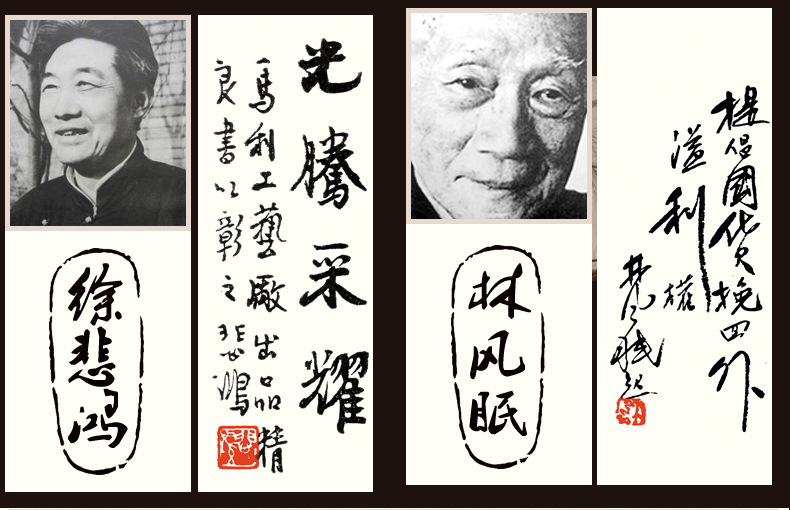 徐悲鸿
光騰采耀
馬利工藝廠出品精
良書以彰之 悲鴻
林风眠
提倡國貨挽回外
溢利權
林風眠